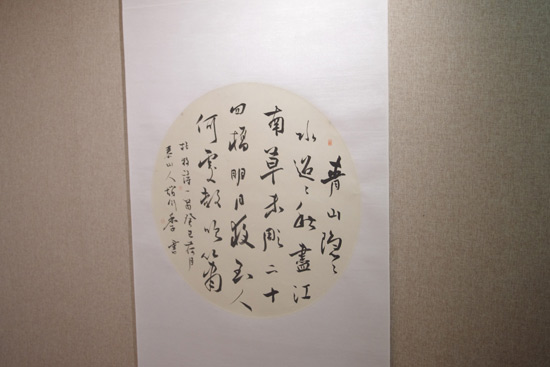 青山隐〻
水迢〻秋盡江
南草未彫二十
四橋明月夜玉人
何處教吹簫
杜牧詩一首癸 荷月
山人 書